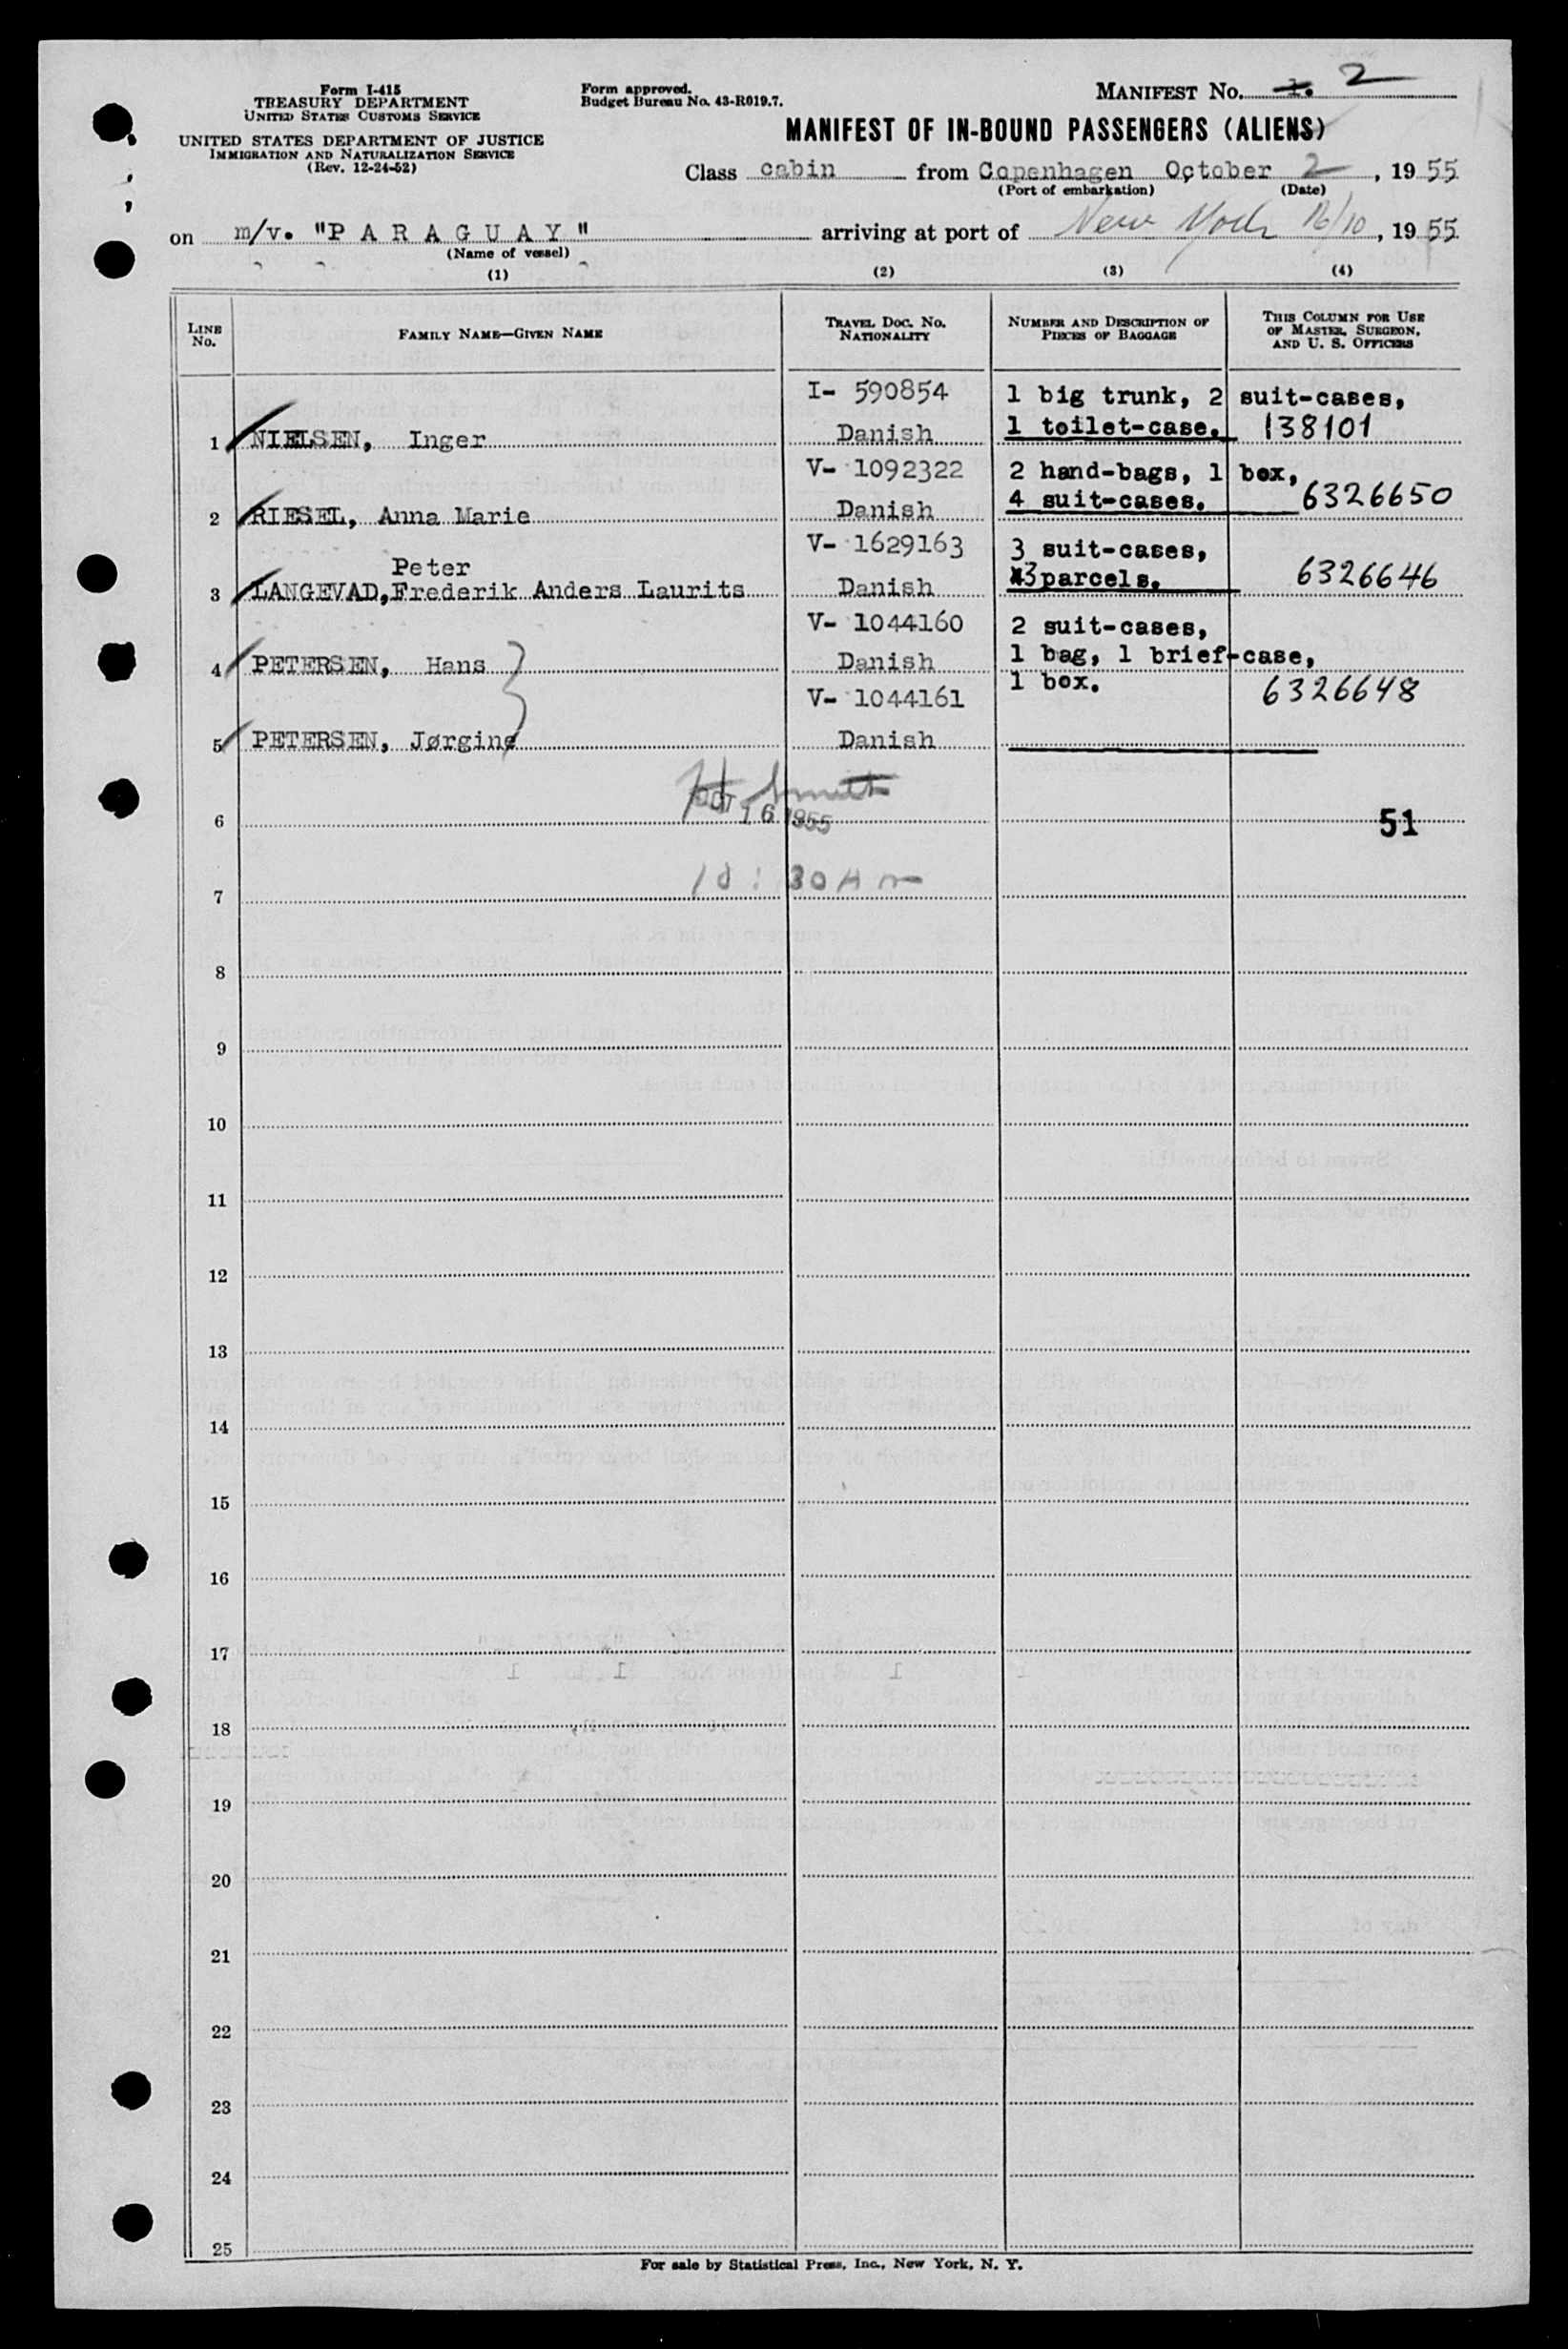 Form I-415
TREASURY DEPARTMENT
UNITED STATES CUSTOMS SERVICE
UNITED STATES DEPARTMENT OF JUSTICE
IMMIGRATION AND NATURALIZATION SERVICE
(Rev. 12-24-52)
Form approved.
Budget Bureau No. 43-R019.7.
MANIFEST No. 1. 2
MANIFEST OF IN-BOUND PASSENGERS (ALIENS)
Class cabin from Copenhagen October 2, 1955
(Port of embarkation) (Date)
on m/v. "P A R A G U A Y" arriving at port of New York 16/10, 1955
(Name of vessel)
(1) (2) (3) (4)
LINE No. FAMILY NAME—GIVEN NAME TRAVEL DOC. NO. NATIONALITY NUMBER AND DESCRIPTION OF PIECES OF BAGGAGE THIS COLUMN FOR USE OF MASTER, SURGEON, AND U. S. OFFICERS
I- 590854 1 big trunk, 2 suit-cases,
1 NIELSEN, Inger Danish 1 toilet-case. 138101
V- 1092322 2 hand-bags, 1 box,
2 RIESEL, Anna Marie Danish 4 suit-cases. 6326650
V- 1629163 3 suit-cases,
Peter
3 LANGEVAD, Frederik Anders Laurits Danish 3 parcels. 6326646
V- 1044160 2 suit-cases,
4 PETERSEN, Hans Danish 1 bag, 1 brief-case,
V- 1044161 1 box. 6326648
5 PETERSEN, Jørgine Danish
Smith
OCT 16 1955
6 51
7 10:30 AM
8
9
10
11
12
13
14
15
16
17
18
19
20
21
22
23
24
25
For sale by Statistical Press, Inc., New York, N. Y.